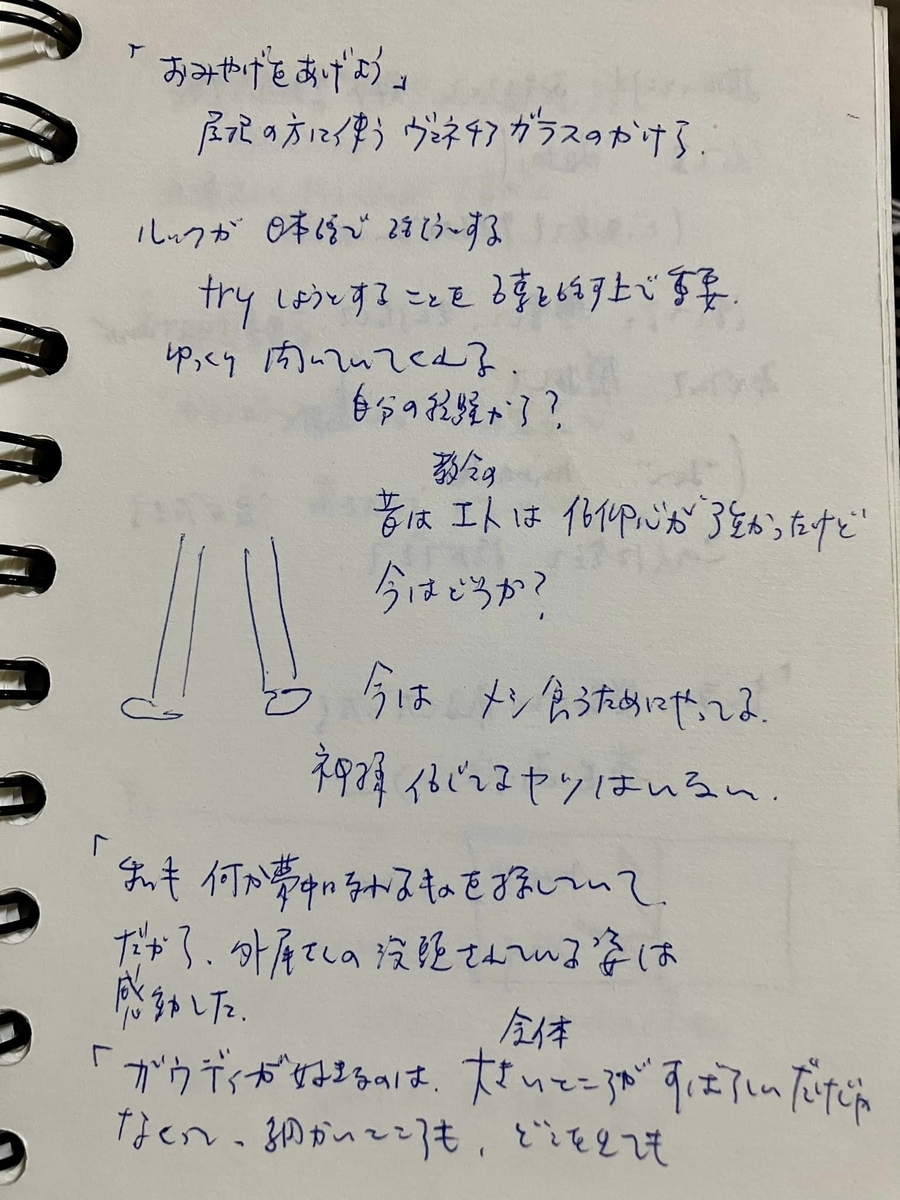 「おみやげをあげよう」
屋根の方に使うヴェネチアガラスのかけら.
ルックが 日本語で 話そう〜する
try しようとすることを 言葉を話す上で重要.
ゆっくり 聞いていてくれる.
自分の経験から?
教会の
昔は 工人は 信仰心が強かったけど
今はどうか?
今は メシ食うためにやってる.
神様 信じてるヤツはいない.
「私も 何か夢中になれるものを探していて
だから、外尾さんの没頭されている姿は
感動した.
全体
「ガウディが好きなのは、大きいところがすばらしいだけじゃ
なくって、細かいところも、どこを見ても